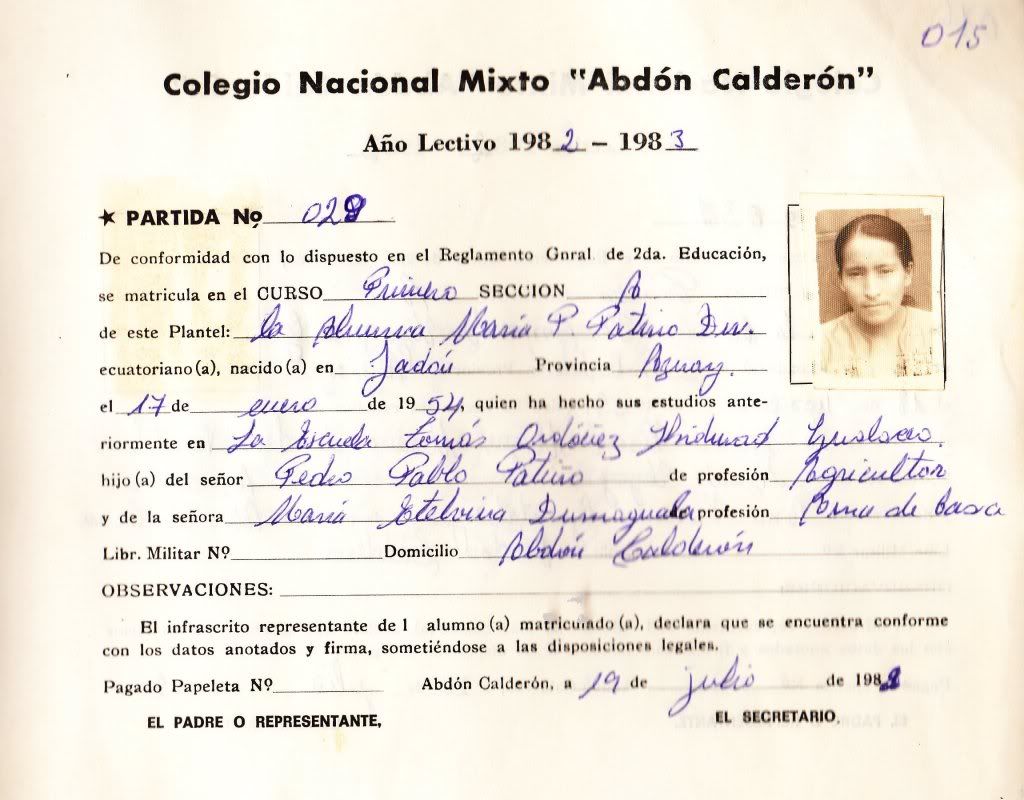 015
Colegio Nacional Mixto "Abdón Calderón"
Año Lectivo 1982 – 1983
★ PARTIDA Nº 028
De conformidad con lo dispuesto en el Reglamento Gnral. de 2da. Educación,
se matricula en el CURSO Primero SECCION A
de este Plantel: la Alumna María P. Patiño Dum.
ecuatoriano(a), nacido(a) en Jadán Provincia Azuay.
el 17 de enero de 1954, quien ha hecho sus estudios ante-
riormente en La Escuela Tomás Ordóñez Gualaceo.
hijo(a) del señor Pedro Pablo Patiño de profesión Agricultor
y de la señora María Etelvina Dumaguala profesión Ama de Casa
Libr. Militar Nº Domicilio Abdón Calderón
OBSERVACIONES:
El infrascrito representante del alumno(a) matriculado(a), declara que se encuentra conforme
con los datos anotados y firma, sometiéndose a las disposiciones legales.
Pagado Papeleta Nº Abdón Calderón, a 19 de julio de 1982
EL PADRE O REPRESENTANTE, EL SECRETARIO.